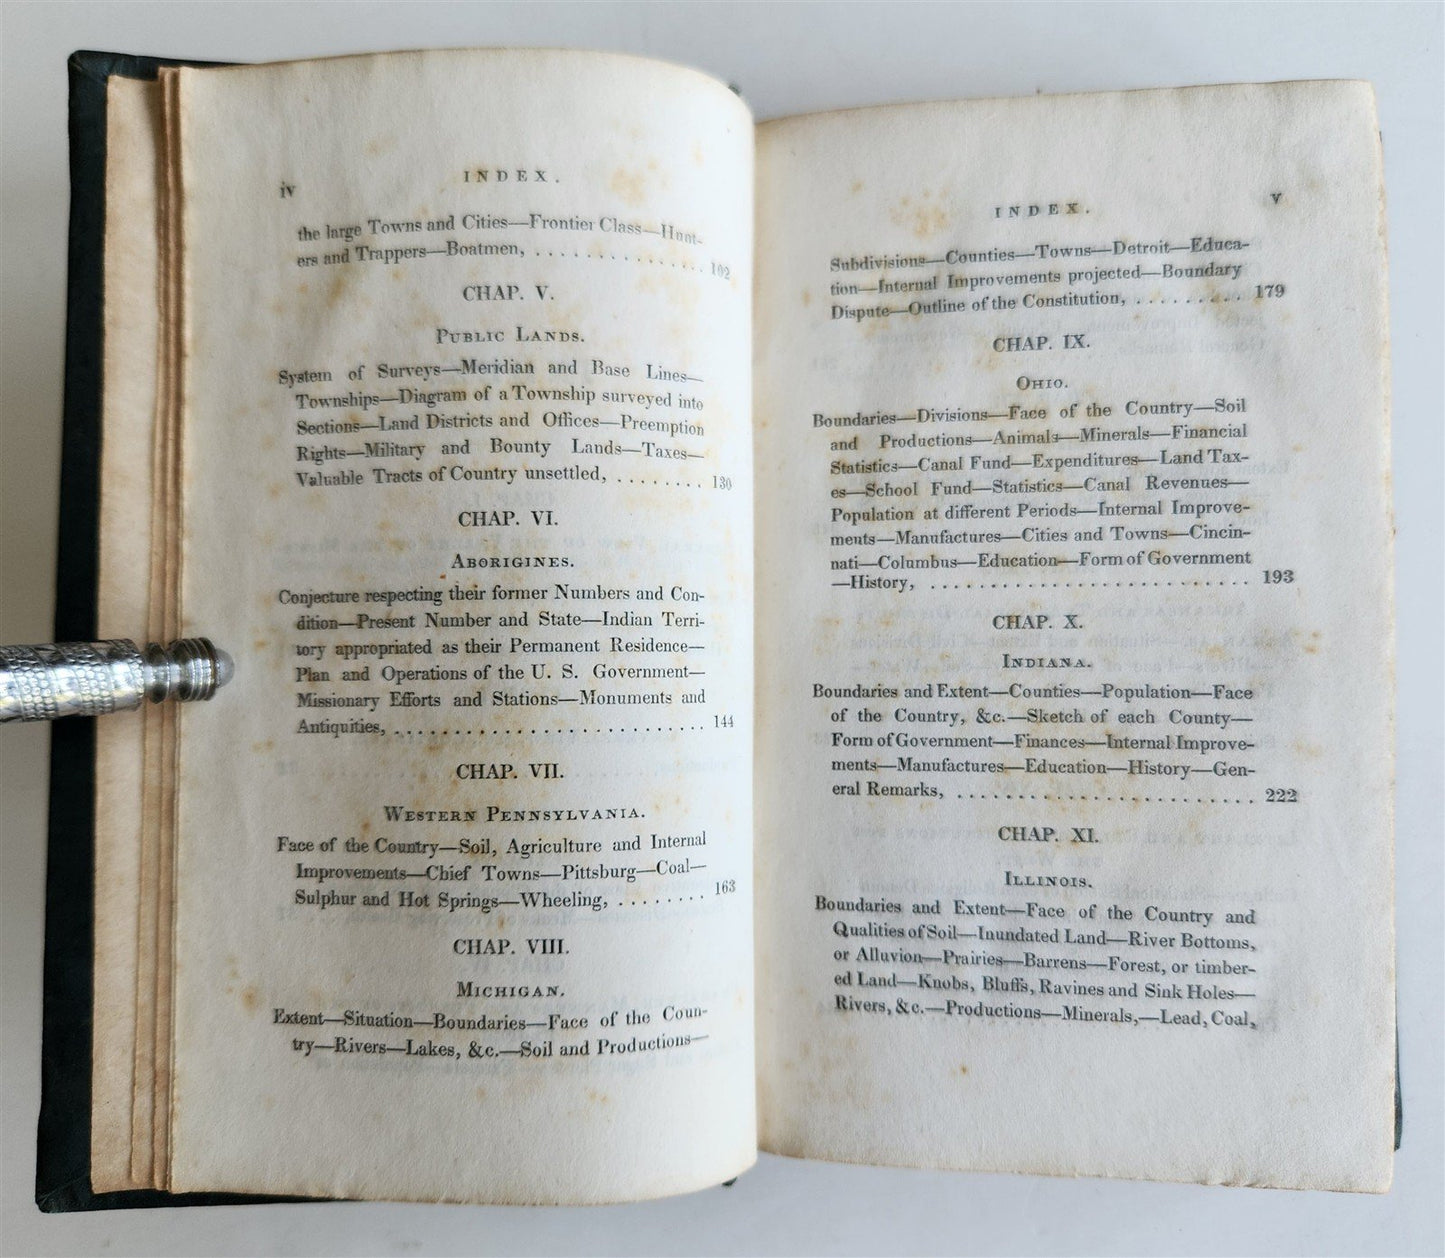 iv
INDEX.
the large Towns and Cities—Frontier Class—Hunt-
ers and Trappers—Boatmen, . . . . . . . . . . . . . . 102
CHAP. V.
PUBLIC LANDS.
System of Surveys—Meridian and Base Lines—
Townships—Diagram of a Township surveyed into
Sections—Land Districts and Offices—Preemption
Rights—Military and Bounty Lands—Taxes—
Valuable Tracts of Country unsettled, . . . . . . . . 130
CHAP. VI.
ABORIGINES.
Conjecture respecting their former Numbers and Con-
dition—Present Number and State—Indian Terri-
tory appropriated as their Permanent Residence—
Plan and Operations of the U. S. Government—
Missionary Efforts and Stations—Monuments and
Antiquities, . . . . . . . . . . . . . . . . . . . . . . . . . . 144
CHAP. VII.
WESTERN PENNSYLVANIA.
Face of the Country—Soil, Agriculture and Internal
Improvements—Chief Towns—Pittsburg—Coal—
Sulphur and Hot Springs—Wheeling, . . . . . . . . 163
CHAP. VIII.
MICHIGAN.
Extent—Situation—Boundaries—Face of the Coun-
try—Rivers—Lakes, &c.—Soil and Productions—
INDEX.
v
Subdivisions—Counties—Towns—Detroit—Educa-
tion—Internal Improvements projected—Boundary
Dispute—Outline of the Constitution, . . . . . . . . . 179
CHAP. IX.
OHIO.
Boundaries—Divisions—Face of the Country—Soil
and Productions—Animals—Minerals—Financial
Statistics—Canal Fund—Expenditures—Land Tax-
es—School Fund—Statistics—Canal Revenues—
Population at different Periods—Internal Improve-
ments—Manufactures—Cities and Towns—Cincin-
nati—Columbus—Education—Form of Government
—History, . . . . . . . . . . . . . . . . . . . . . . . . . . . 193
CHAP. X.
INDIANA.
Boundaries and Extent—Counties—Population—Face
of the Country, &c.—Sketch of each County—
Form of Government—Finances—Internal Improve-
ments—Manufactures—Education—History—Gen-
eral Remarks, . . . . . . . . . . . . . . . . . . . . . . . . 222
CHAP. XI.
ILLINOIS.
Boundaries and Extent—Face of the Country and
Qualities of Soil—Inundated Land—River Bottoms,
or Alluvion—Prairies—Barrens—Forest, or timber-
ed Land—Knobs, Bluffs, Ravines and Sink Holes—
Rivers, &c.—Productions—Minerals,—Lead, Coal,